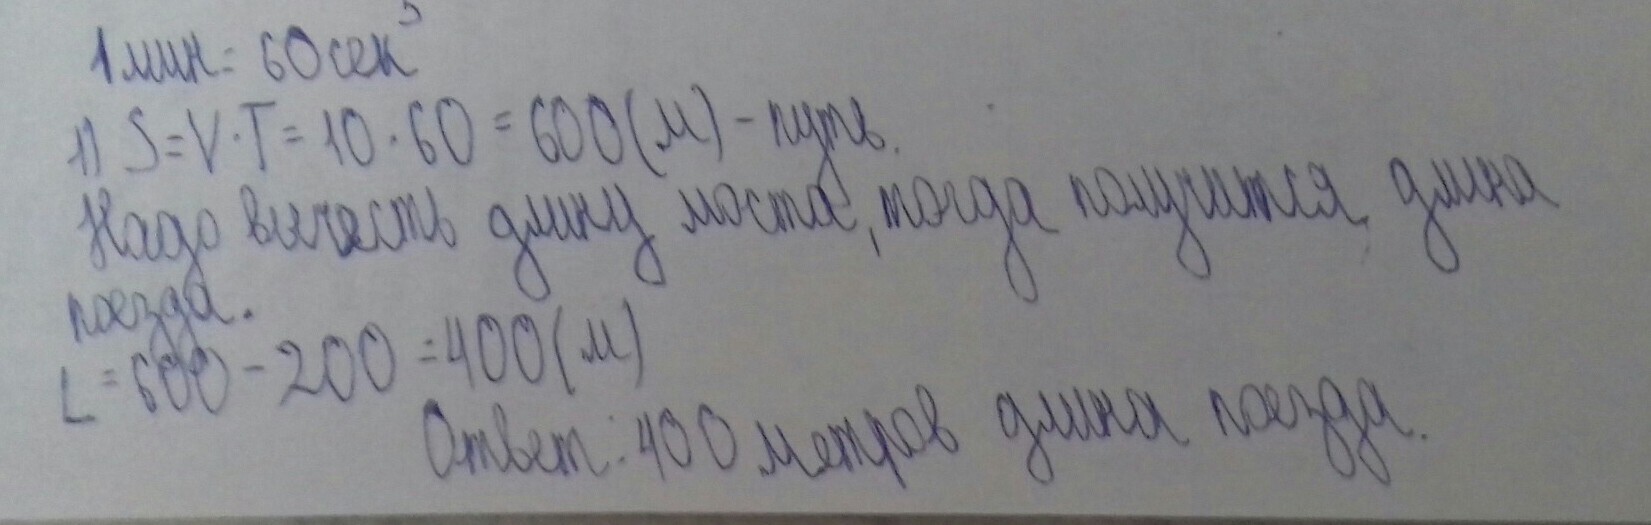 1 мин = 60 сек
1) S=V·T=10·60=600(м)-путь.
Надо вычесть длину моста, тогда получится длина
поезда.
L=600-200=400(м)
Ответ: 400 метров длина поезда.